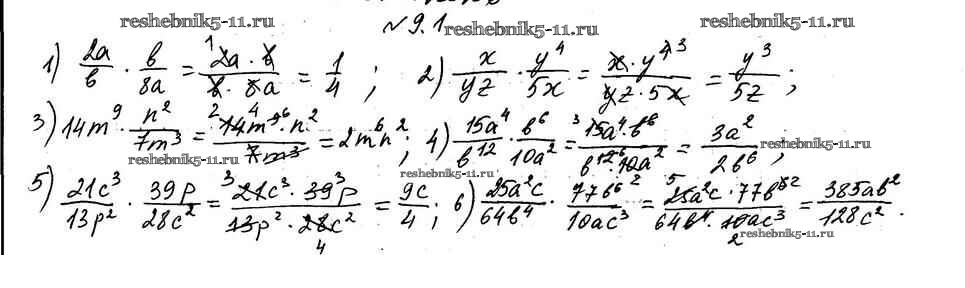 reshebnik5-11.ru
reshebnik5-11.ru
№ 9.1 reshebnik5-11.ru
1) 2a/b · b/8a = 2a · b / b · 8a = 1/4 ; 2) x/yz · y⁴/5x = x · y⁴ ³ / yz · 5x = y³/5z ;
3) 14m⁹ · n²/7m³ = 14m⁹ ⁶ · n² / 7m³ = 2m⁶n² ; 4) 15a⁴/b¹² · b⁶/10a² = 15a⁴ · b⁶ / b¹² ⁶ · 10a² = 3a²/2b⁶ ;
reshebnik5-11.ru
reshebnik5-11.ru
5) 21c³/13p² · 39p/28c² = 21c³ · 39p / 13p² · 28c² = 9c/4 ; 6) 25a²c/64b⁴ · 77b⁶/10ac³ = 25a²c · 77b⁶ ² / 64b⁴ · 10ac³ = 385ab²/128c² .
reshebnik5-11.ru
reshebnik5-11.ru